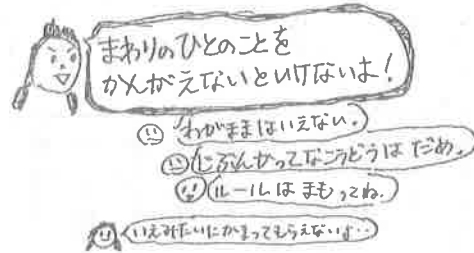 まわりのひとのことを
かんがえないといけないよ!
わがままはいえない。
じぶんかってなこうどうは だめ。
ルールは まもってね。
いえみたいにかまってもらえないよ…